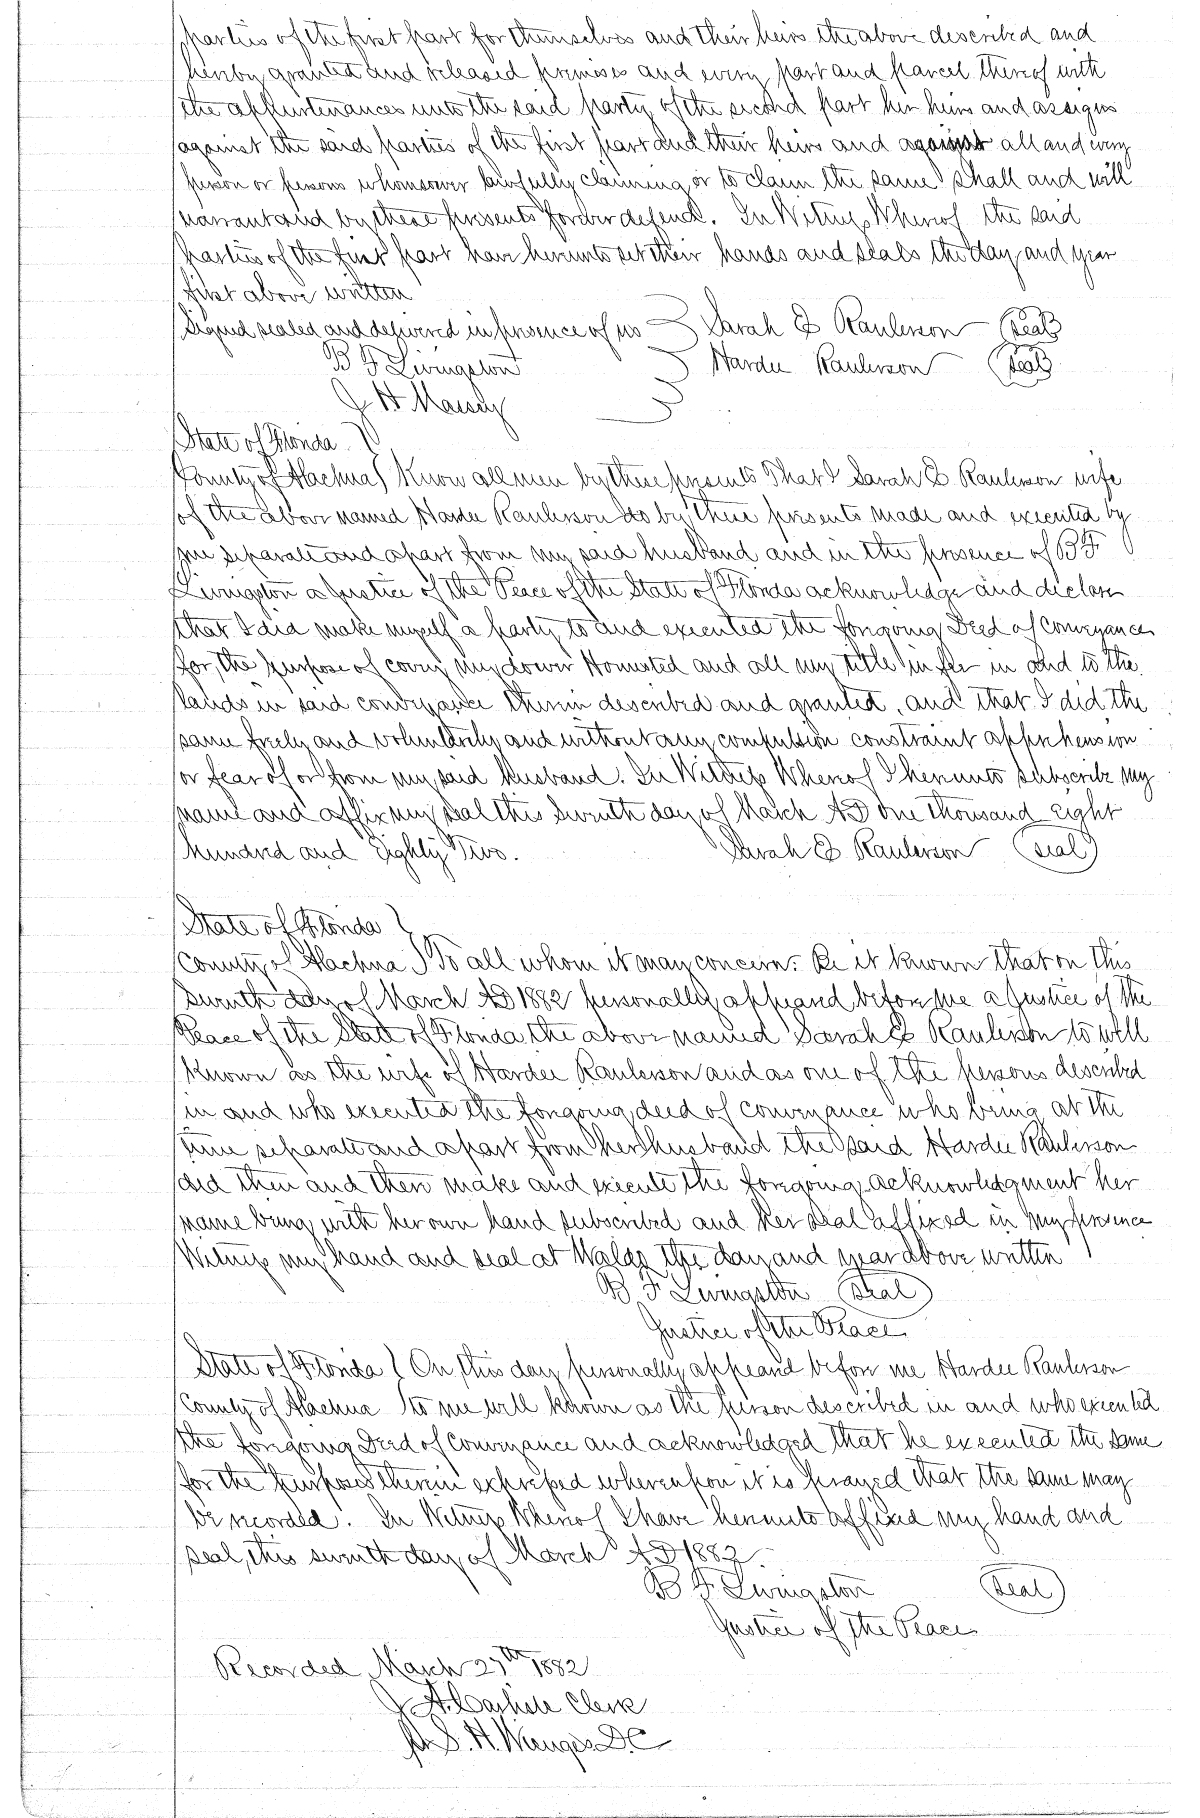 parties of the first part for themselves and their heirs the above described and
hereby granted and released premises and every part and parcel thereof with
the appurtenances unto the said party of the second part her heirs and assigns
against the said parties of the first part and their heirs and against all and every
person or persons whomsoever lawfully claiming or to claim the same shall and will
warrant and by these presents forever defend. In Witness Whereof the said
parties of the first part have hereunto set their hands and seals the day and year
first above written
Signed sealed and delivered in presence of us Sarah E Raulerson Seal
B F Livingston Hardee Raulerson Seal
J H Massey
State of Florida
County of Alachua Know all men by these presents That I Sarah E Raulerson wife
of the above named Hardee Raulerson do by these presents made and executed by
me separate and apart from my said husband and in the presence of B F
Livingston a Justice of the Peace of the State of Florida acknowledge and declare
that I did make myself a party to and executed the foregoing Deed of Conveyance
for the purpose of my dower Homested and all my title in fee in and to the
lands in said conveyance therein described and granted, and that I did the
same freely and voluntarily and without any compulsion constraint apprehension
or fear of or from my said husband. In Witness Whereof I hereunto subscribe my
name and affix my seal this seventh day of March AD one thousand eight
hundred and Eighty Two. Sarah E Raulerson Seal
State of Florida
County of Alachua To all whom it may concern. Be it known that on this
Seventh day of March AD 1882 personally appeared before me a Justice of the
Peace of the State of Florida the above named Sarah E Raulerson to well
known as the wife of Hardee Raulerson and as one of the persons described
in and who executed the foregoing deed of conveyance who being at the
time separate and apart from her husband the said Hardee Raulerson
did then and there make and execute the foregoing acknowledgment her
name being with her own hand subscribed and her seal affixed in my presence
Witness my hand and seal at Waldo the day and year above written
B F Livingston Seal
Justice of the Peace
State of Florida On this day personally appeared before me Hardee Raulerson
County of Alachua to me well known as the person described in and who executed
the foregoing Deed of Conveyance and acknowledged that he executed the same
for the purposes therein expressed whereupon it is prayed that the same may
be recorded. In Witness Whereof I have hereunto affixed my hand and
seal, this seventh day of March AD 1882.
B F Livingston Seal
Justice of the Peace
Recorded March 27th 1882
J A Carlisle Clerk
S. H. D.C.